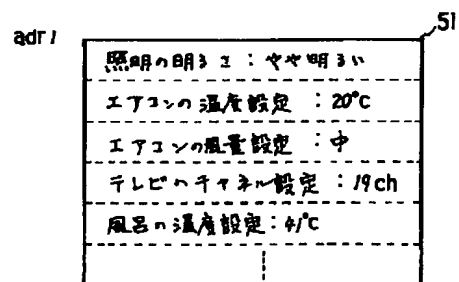 51
adr1
照明の明るさ：やや明るい
エアコンの温度設定：20°C
エアコンの風量設定：中
テレビのチャネル設定：19ch
風呂の温度設定：41°C